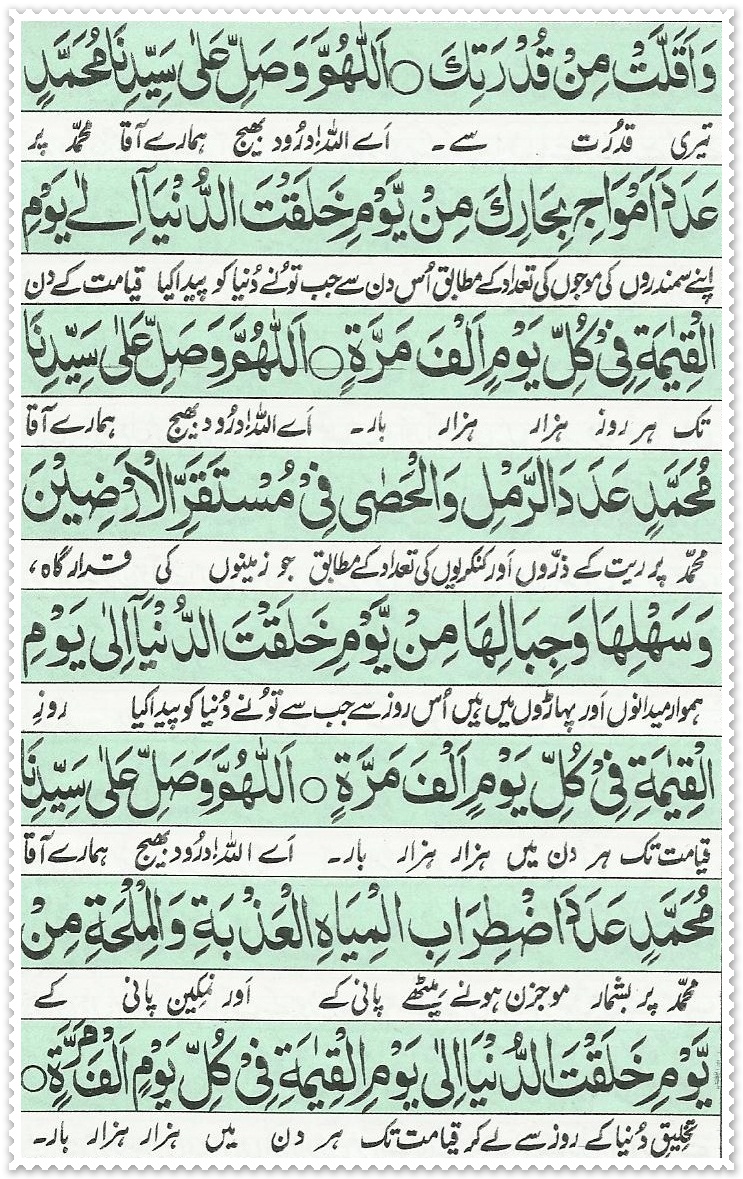 وَاَقَلَّتْ مِنْ قُدْرَتِكَ ○ اَللّٰهُمَّ وَصَلِّ عَلٰى سَيِّدِنَا مُحَمَّدٍ
تیری قدرت سے۔ اَے اللہ! درُود بھیج ہمارے آقا محمّد پر
عَدَدَ اَمْوَاجِ بِحَارِكَ مِنْ يَّوْمِ خَلَقْتَ الدُّنْيَآ اِلٰے يَوْمِ
اپنے سمندروں کی موجوں کی تعداد کے مطابق اُس دن سے جب تونے دُنیا کو پیدا کیا قیامت کے دن
الْقِيٰمَةِ فِيْ كُلِّ يَوْمٍ اَلْفَ مَرَّةٍ ○ اَللّٰهُمَّ وَصَلِّ عَلٰى سَيِّدِنَا
تک ہر روز ہزار ہزار بار۔ اَے اللہ! درُود بھیج ہمارے آقا
مُحَمَّدٍ عَدَدَ الرَّمْلِ وَالْحَصٰى فِيْ مُسْتَقَرِّ الْاَرَضِيْنَ
محمّد پر ریت کے ذرّوں اَور کنکریوں کی تعداد کے مطابق جو زمینوں کی قرار گاہ،
وَسَهْلِهَا وَجِبَالِهَا مِنْ يَّوْمِ خَلَقْتَ الدُّنْيَآ اِلٰى يَوْمِ
ہموار میدانوں اَور پہاڑوں میں ہیں اُس روز سے جب سے تُونے دُنیا کو پیدا کیا روزِ
الْقِيٰمَةِ فِيْ كُلِّ يَوْمٍ اَلْفَ مَرَّةٍ ○ اَللّٰهُمَّ وَصَلِّ عَلٰى سَيِّدِنَا
قیامت تک ہر دن میں ہزار ہزار بار۔ اَے اللہ! درُود بھیج ہمارے آقا
مُحَمَّدٍ عَدَدَ اضْطِرَابِ الْمِيَاهِ الْعَذْبَةِ وَالْمِلْحَةِ مِنْ
محمّد پر بشمار موجزن ہونے میٹھے پانی کے اَور نمکین پانی کے
يَّوْمِ خَلَقْتَ الدُّنْيَآ اِلٰى يَوْمِ الْقِيٰمَةِ فِيْ كُلِّ يَوْمٍ اَلْفَ مَرَّةٍ ○
تخلیقِ دُنیا کے روز سے لے کر قیامت تک ہر دن میں ہزار ہزار بار۔